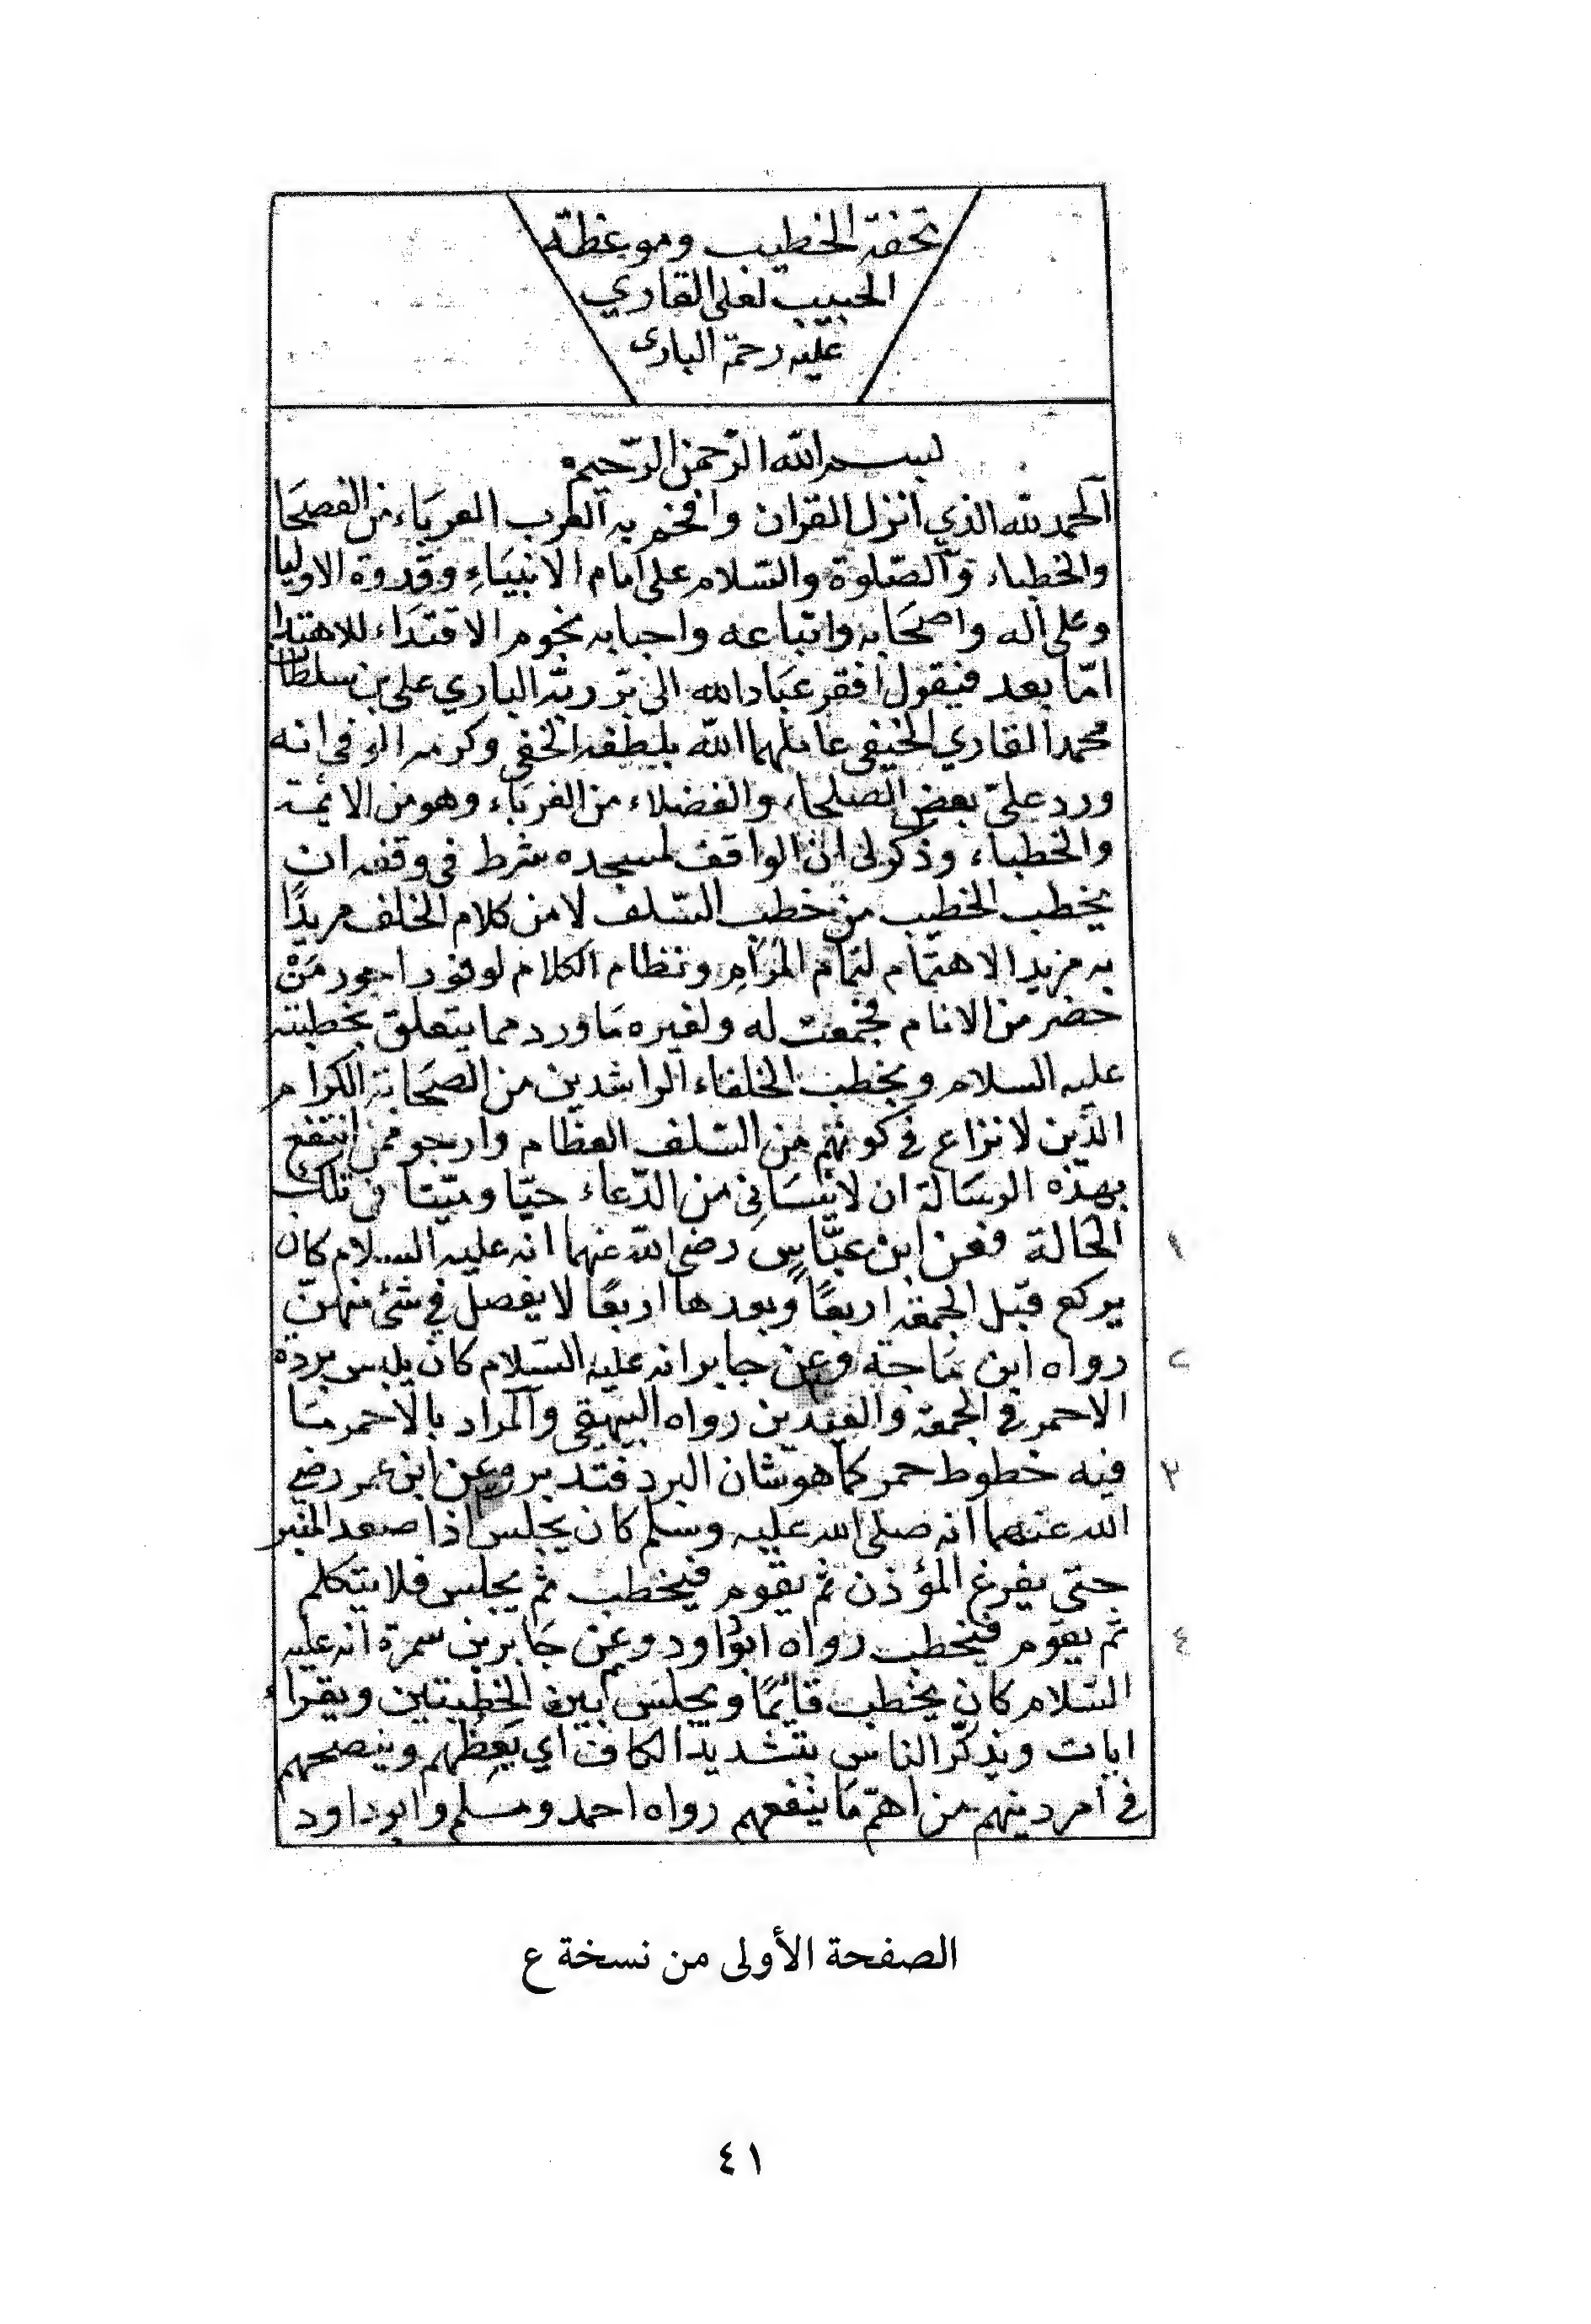 تحفة الخطيب وموعظة
الحبيب لعلى القاري
عليه رحمة البارى
بسم الله الرّحمن الرّحيم
الحمد لله الذي انزل القران وافحم به العرب العربَاء من الفصحَا
والخطباء والصّلوة والسّلام على امام الانبيَاءِ وقدوة الاوليا
وعلى اله واصحَابه واتباعه واحبابه نجوم الاقتدَاء للاهتدا
امّا بعد فيقول افقر عبَاد الله الى برّ ربّه الباري على بن سلطان
محمد القاري الحنيفى عاملهما الله بلطفه الخفى وكرمه الوفى انه
ورد علىّ بعض الصلحاء والفضلاء من الغربَاء وهو من الائمة
والخطباء وذكر لى ان الواقف لمسجده شرط فى وقفه ان
يخطب الخطيب من خطب السّلف لا من كلام الخلف مريدًا
به مزيد الاهتمام لتمام المَرَامِ ونظام الكلام لوفور اجور مَنْ
حضر من الانام فجمعت له ولغيره مَا ورد مما يتعلق بخطبته
عليه السلام وبخطب الخلفاء الراشدين من الصحَابة الكرام
الذين لا نزاع فى كونهم من السّلف العظام وارجو ممن انتفع
بهذه الرسَالة ان لا ينسَانِى من الدّعاء حيّا وميّتا فى تلك
الحالة فعن ابن عبَّاسٍ رضى الله عنهما انه عليه السلام كان ١
يركع قبل الجمعة اربعًا وبعدها اربعًا لا يفصل في شئ منهنّ
رواه ابن مَاجة وعن جابر انه عليه السّلام كان يلبس بردة ٢
الاحمر فى الجمعة والعيدين رواه البيهقى والمراد بالاحمر مَا
فيه خطوط حمر كما هو شان البرد فتدبر وعن ابن عمر رضى ٣
الله عنهما انه صلى الله عليه وسلم كان يجلس اذا صعد المنبر
حتى يفرغ المؤذن ثم يقوم فيخطب ثم يجلس فلا يتكلم
ثم يقوم فيخطب رواه ابو داود وعن جَابر بن سمرة انه عليه ٤
السّلام كان يخطب قائمًا ويجلس بين الخطبتين ويقراء
ايات ويذكّر الناس بتشديد الكاف اي يَعِظُهم وينصحهم
فى امر دينهم من اهمّ مَا ينفعهم رواه احمد ومسلم وابو داود
الصفحة الأولى من نسخة ع
٤١